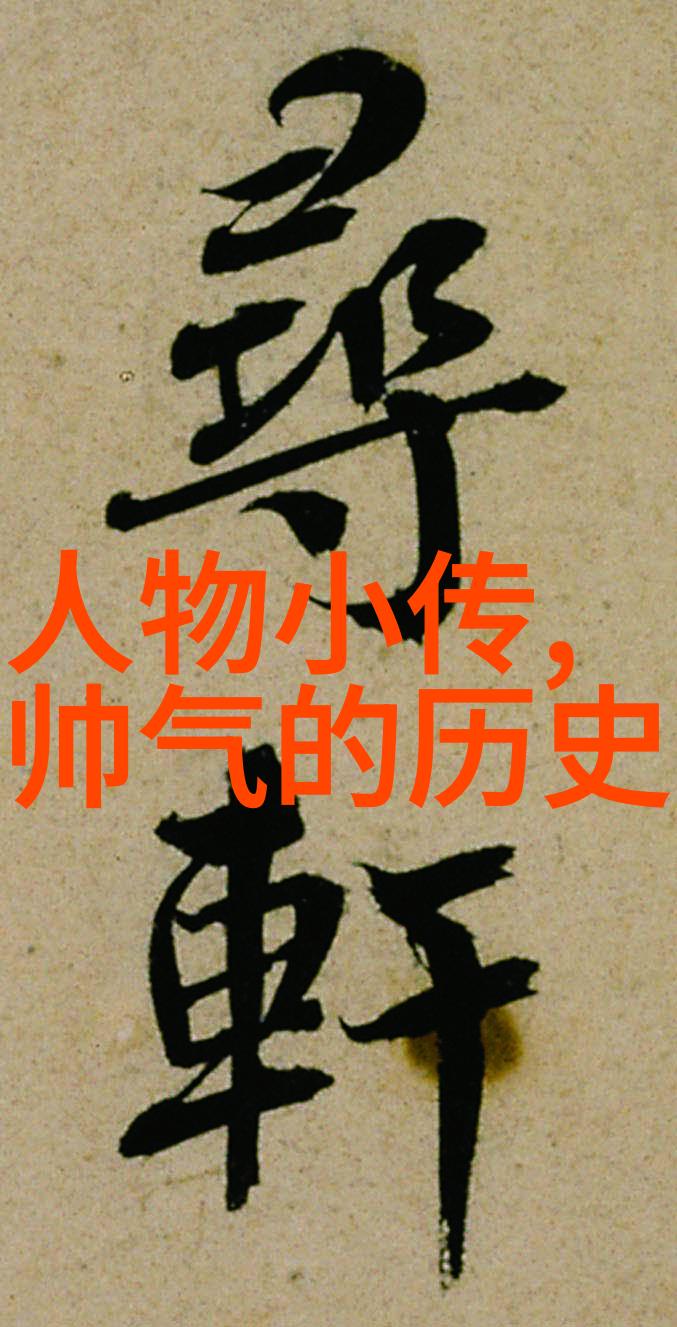 尋
軒
人物小传，
帅气的历史